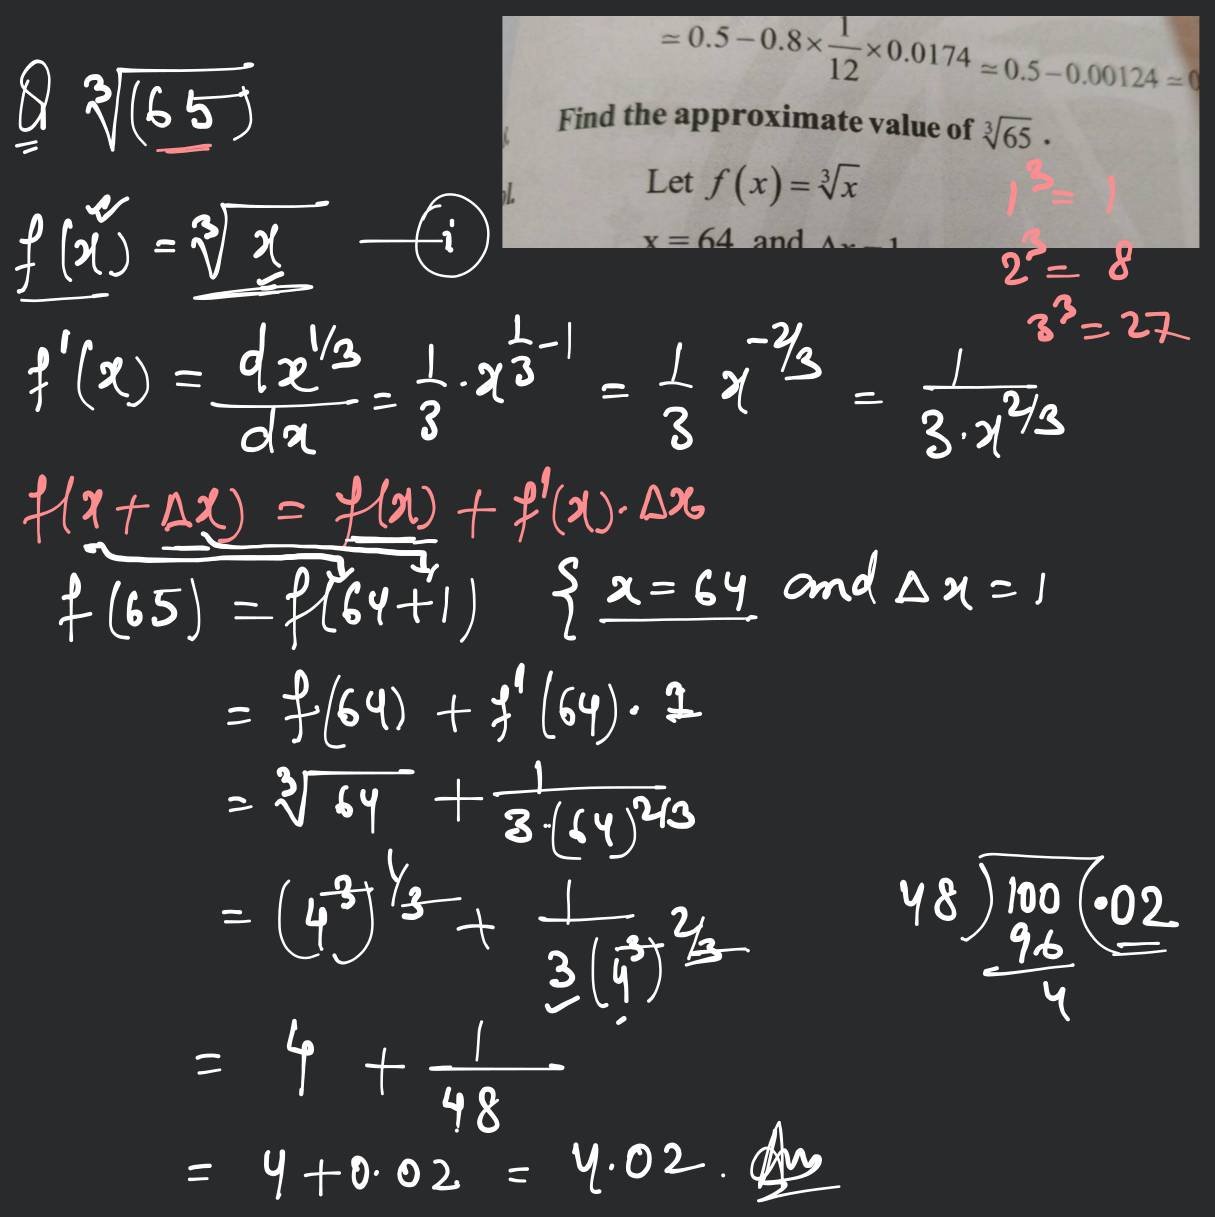 ≃ 0.5 − 0.8 × 1/12 × 0.0174 ≃ 0.5 − 0.00124 ≃ 0
Find the approximate value of ∛65 .
Let f(x) = ∛x
x = 64 and Δx = 1
Q ∛(65)
f(x) = ∛x — i
1³ = 1
2³ = 8
3³ = 27
f'(x) = dx^1/3 / dx = 1/3 · x^(1/3 − 1) = 1/3 x^−2/3 = 1 / 3·x^2/3
f(x + Δx) = f(x) + f'(x) · Δx
f(65) = f(64+1) { x = 64 and Δx = 1
= f(64) + f'(64) · 1
= ∛64 + 1 / 3·(64)^2/3
= (4³)^1/3 + 1 / 3(4³)^2/3
48 ) 100 ( .02
96
4
= 4 + 1/48
= 4 + 0.02 = 4.02 . Ans